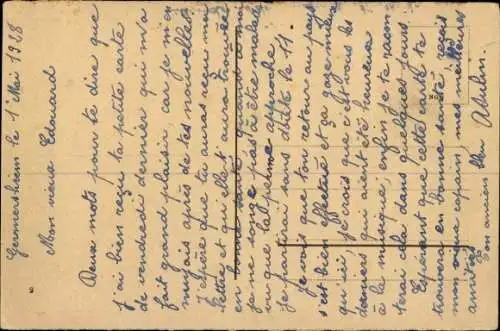 Germersheim le 1 Mai 1948
Mon vieux Edouard
Deux mots pour te dire que
j'ai bien reçu ta petite carte
de vendredi dernier qui m'a
fait grand plaisir, car je m'en
nuyais après de tes nouvelles.
J'espère que tu auras reçu ma
lettre et qu'elle t'aura trouvé
en bonne santé, quand à moi
je ne songe pas à être malade
vu que la approche
je partirai sans doute le 11
Je vois que ton retour au pays
s'est bien effectué et ça gaze mieux
qu'ici je crois que c'est vous les
derniers qui aient été heureux
à la musique, enfin je te
cela dans quelques jours.
Espérant que cette carte te
trouvera en bonne santé, reçois
mon vieux copain, mes meilleures
amitiés
Ton ancien